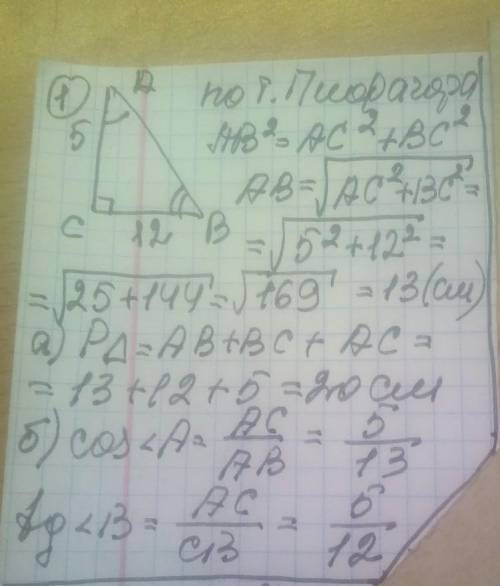 ① A по т. Пифагора
5 AB² = AC² + BC²
AB = √(AC² + BC²) =
C 12 B
= √(5² + 12²) =
= √(25 + 144) = √169 = 13 (см)
а) P△ = AB + BC + AC =
= 13 + 12 + 5 = 20 см
б) cos∠A = AC/AB = 5/13
tg∠B = AC/CB = 5/12